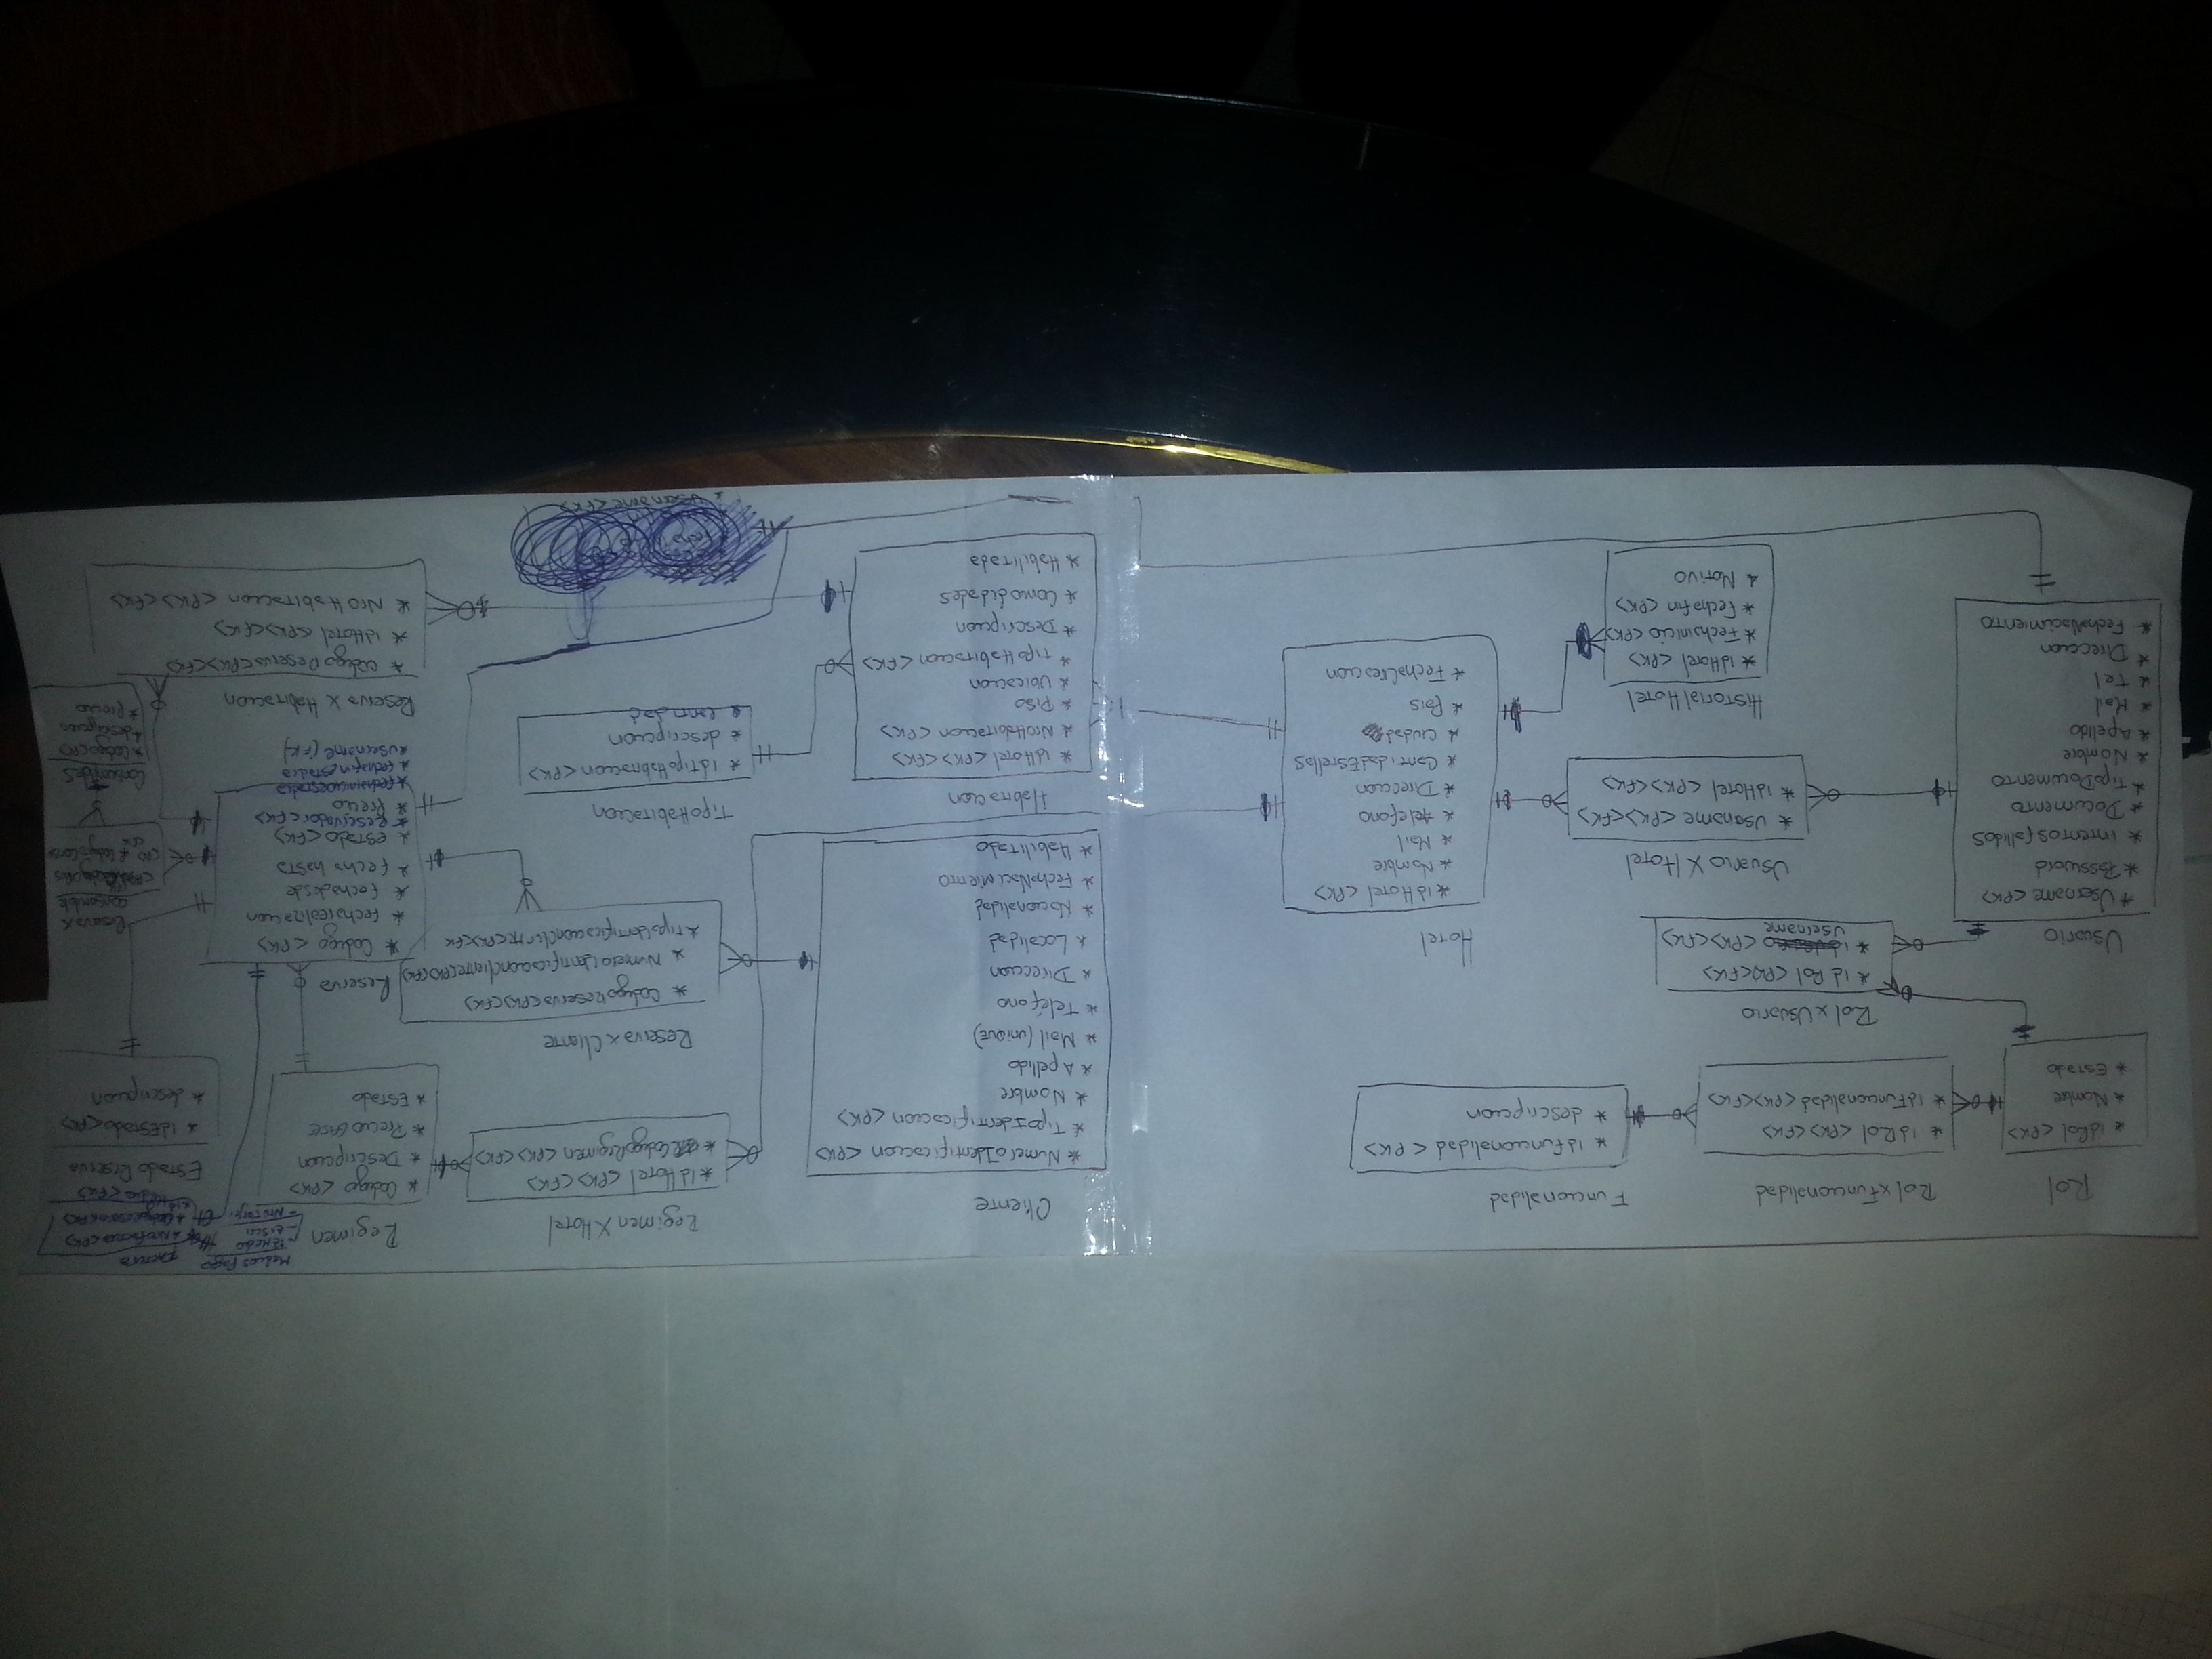 Rol
* IdRol <PK>
* Nombre
* Estado
RolxFuncionalidad
* IdRol <PK><FK>
* IdFuncionalidad <PK><FK>
Funcionalidad
* Idfuncionalidad <PK>
* descripcion
RolxUsuario
* Id Rol <PK><FK>
* <PK><FK>
Username
Usuario
* Username <PK>
* Password
* intentosfallidos
* Documento
* TipoDocumento
* Nombre
* Apellido
* Mail
* Tel
* Direccion
* FechaNacimiento
Usuario X Hotel
* Username <PK><FK>
* idHotel <PK><FK>
Historial Hotel
* IdHotel <PK>
* Fechainicio <PK>
* Fechafin <PK>
* Motivo
Hotel
* IdHotel <PK>
* Nombre
* Mail
* telefono
* Direccion
* CantidadEstrellas
* Ciudad
* Pais
* FechaCreacion
Cliente
* NumeroIdentificacion <PK>
* TipoIdentificacion <PK>
* Nombre
* Apellido
* Mail (UNIQUE)
* Teléfono
* Direccion
* Localidad
* Nacionalidad
* FechaNacimiento
* Habilitado
Habitacion
* IdHotel <PK><FK>
* NroHabitacion <PK>
* Piso
* Ubicacion
* TipoHabitacion <FK>
* Descripcion
* Comodidades
* Habilitada
Regimen X Hotel
* IdHotel <PK><FK>
* CodigoRegimen <PK><FK>
Reserva x Cliente
* CodigoReserva<PK><FK>
* NumeroIdentificacionCliente<PK><FK>
* TipoIdentificacionCliente<PK><FK
TipoHabitacion
* IdTipoHabitacion <PK>
* descripcion
* cantidad
* Username <FK>
Regimen
* Codigo <PK>
* Descripcion
* Precio BASE
* Estado
Medios Pago
- IdMedio
Factura
* NroFactura <PK>
Medio <FK>
Estado Reserva
* IdEstado <PK>
* descripcion
Reserva
* Codigo <PK>
* fecharealizacion
* fechadesde
* fecha hasta
* estado <FK>
* Reservador <FK>
* Precio
* fechainicioestadia
* fechafinestadia
* username (FK)
Reserva x
consumible
Consumibles
* Codigo <PK>
* descripcion
* precio
Reserva X Habitacion
* codigoReserva <PK><FK>
* IdHotel <PK><FK>
* Nro Habitacion <PK><FK>